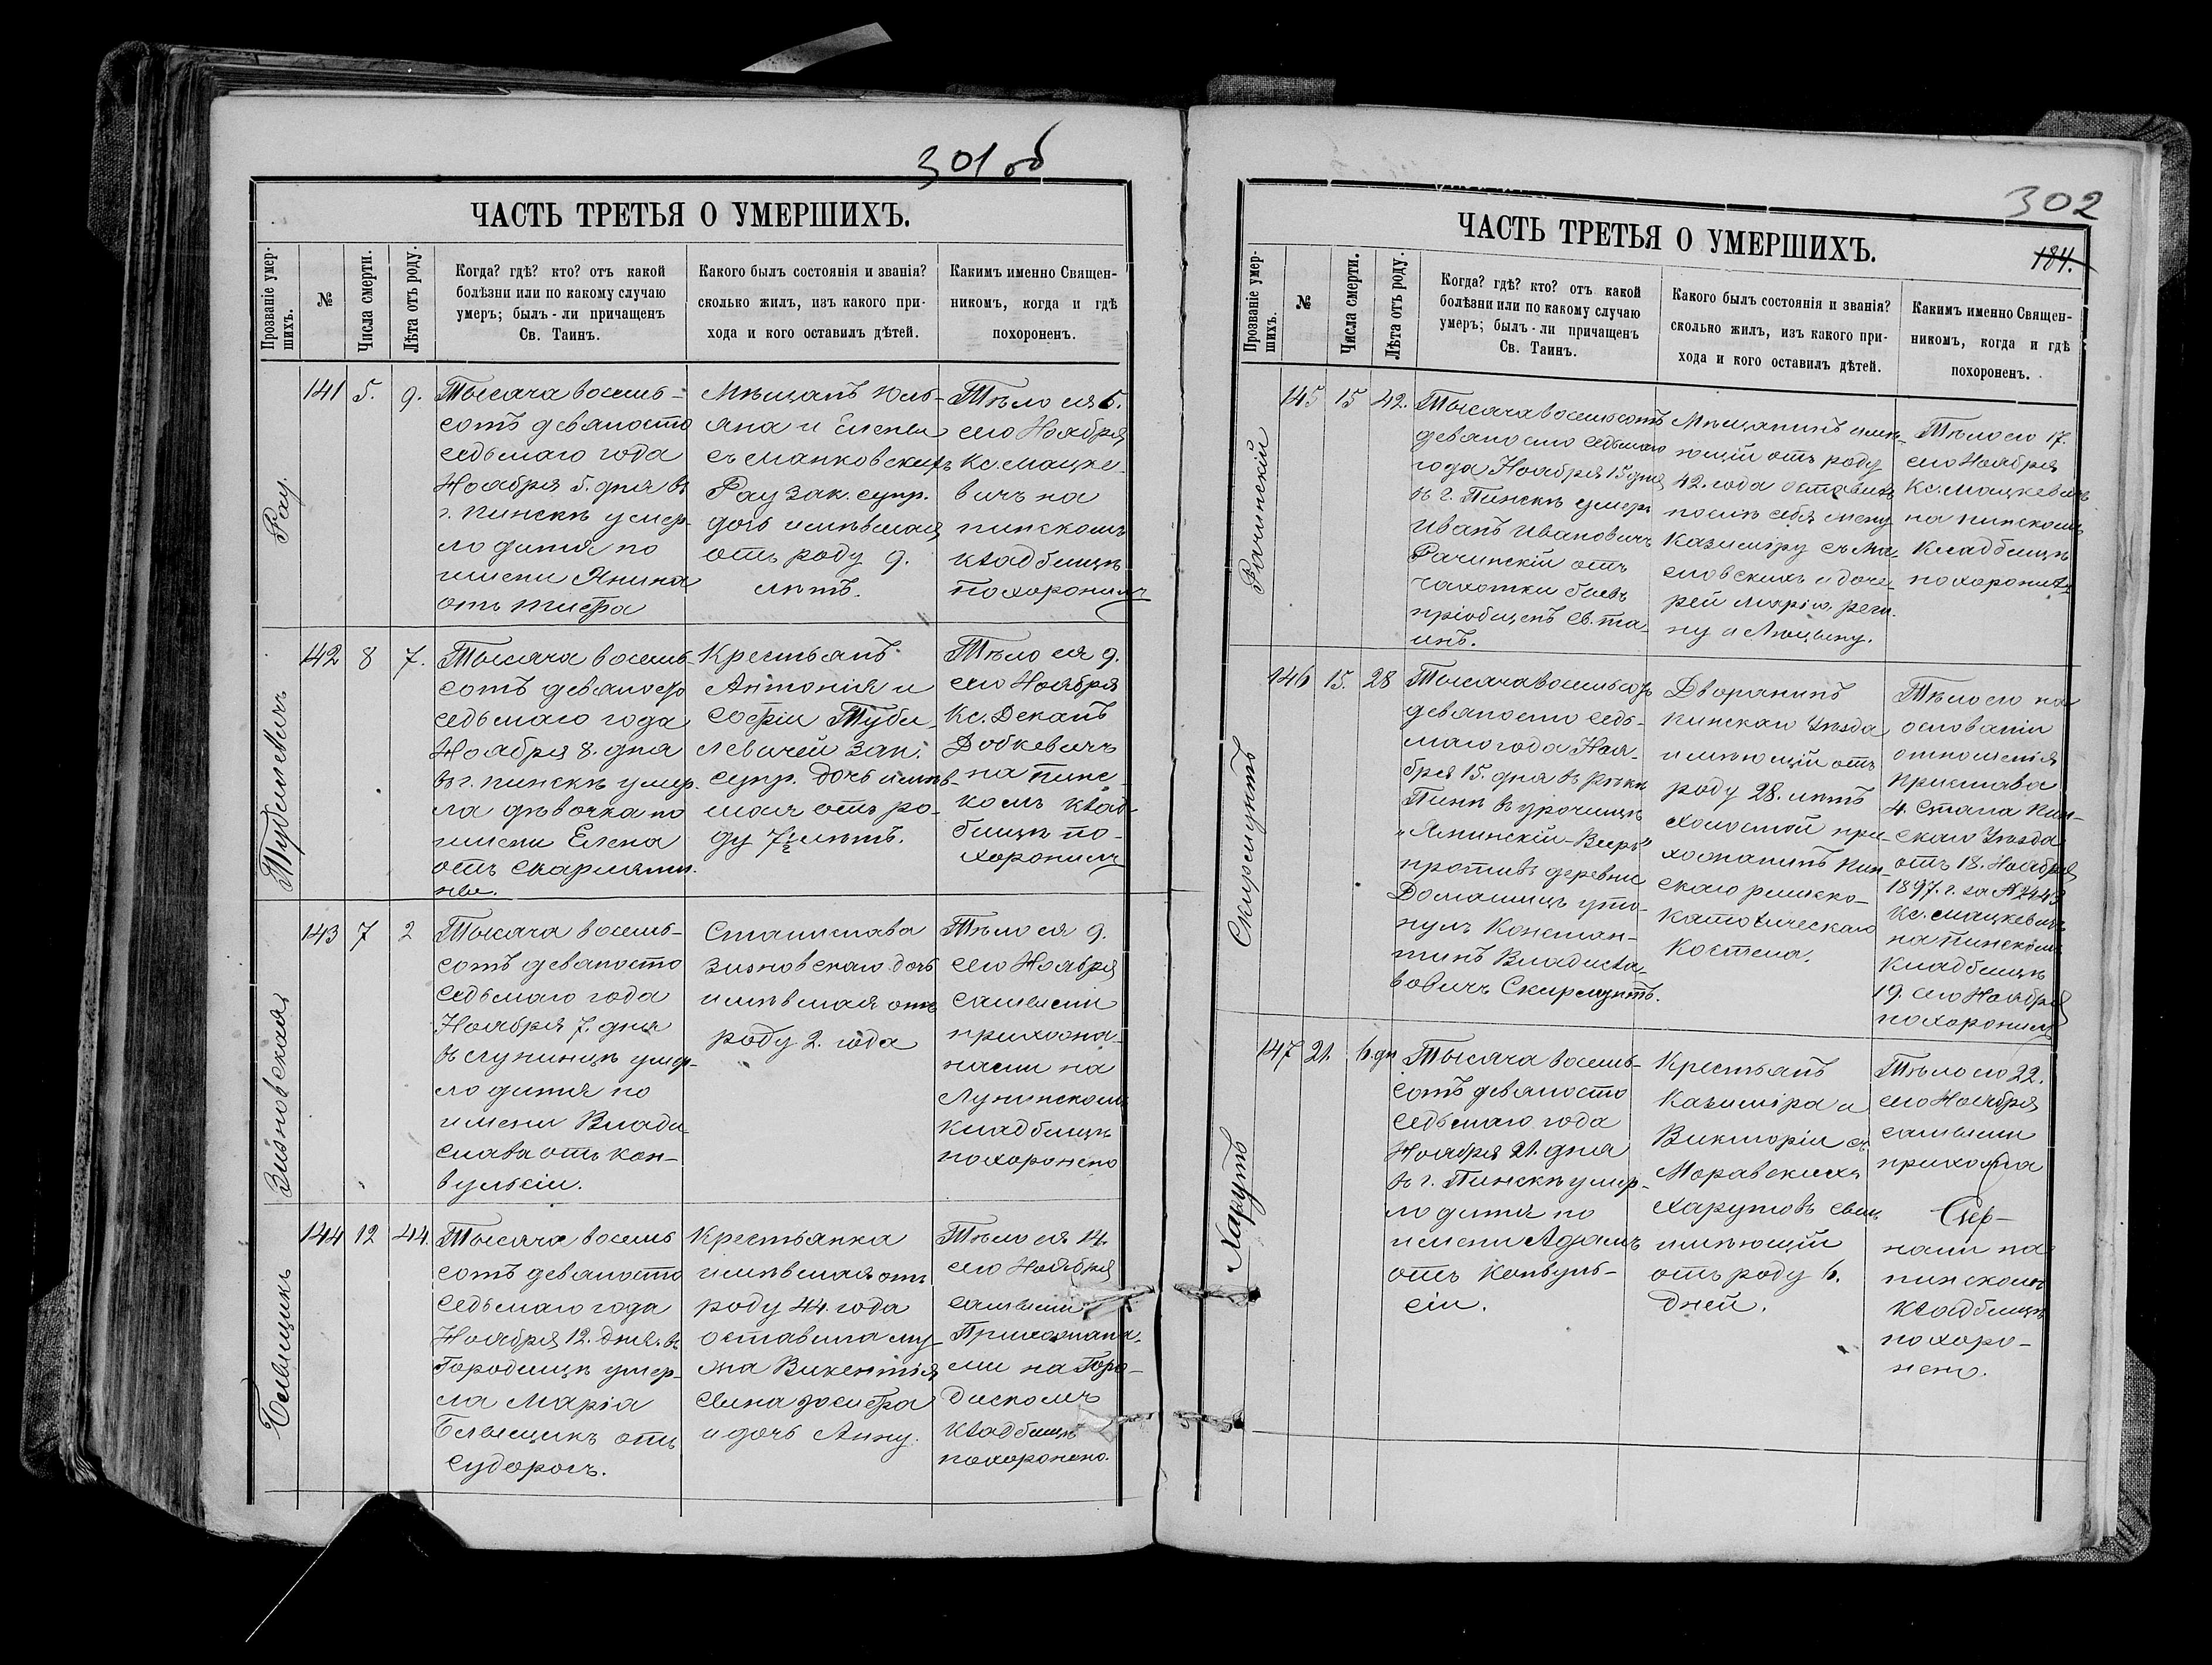 301 об
ЧАСТЬ ТРЕТЬЯ О УМЕРШИХЪ.
Прозваніе умер-
шихъ.
№
Числа смерти.
Лѣта отъ роду.
Когда? гдѣ? кто? отъ какой
болѣзни или по какому случаю
умеръ; былъ-ли причащенъ
Св. Таинъ.
Какого былъ состоянія и званія?
сколько жилъ, изъ какого при-
хода и кого оставилъ дѣтей.
Какимъ именно Священ-
никомъ, когда и гдѣ
похороненъ.
Рау.
141
5.
9.
Тысяча восемь-
сотъ девяносто
седьмаго года
Ноября 5. дня въ
г. Пинскѣ умер-
ло дитя по
имени Янина
отъ тифа
Мѣщанъ Юль-
яна и Елены
съ Манковскихъ
Рау зак. супр.
дочь имѣвшая
отъ роду 9.
лѣтъ.
Тѣло ея 6.
сего Ноября
Кс. Мацке-
вичъ на
пинскомъ
кладбищѣ
похоронилъ
Тубилевичъ
142
8
7.
Тысяча восемь-
сотъ девяносто
седьмаго года
Ноября 8. дня
въ г. Пинскѣ умер-
ла дѣвочка по
имени Елена
отъ скарлати-
ны.
Крестьянъ
Антонія и
Софіи Туби-
левичей зак.
супр. дочь имѣв-
шая отъ ро-
ду 7 1/2 лѣтъ.
Тѣло ея 9.
сего Ноября
Кс. Деканъ
Добкевичъ
на Пинс-
комъ клад-
бищѣ по-
хоронилъ
Зизновская
143
7
2
Тысяча восемь-
сотъ девяносто
седьмаго года
Ноября 7. дня
въ Лунинцѣ умер-
ло дитя по
имени Влади-
слава отъ кон-
вульсіи.
Станислава
Зизновскаго дочь
имѣвшая отъ
роду 2. года
Тѣло ея 9.
сего Ноября
самыми
прихожа-
нами на
Лунинскомъ
кладбищѣ
похоронено
Белыщикъ
144
12
44.
Тысяча восемь
сотъ девяносто
седьмаго года
Ноября 12. дня. въ
Городищѣ умер-
ла Марія
Белыщикъ отъ
судорогъ.
Крестьянка
имѣвшая отъ
роду 44. года
оставила му-
жа Викентія
сына Іосифа
и дочь Анну.
Тѣло ея 14.
сего Ноября
самыми
Прихожана-
ми на Горо-
дискомъ
кладбищѣ
похоронено.
302
184.
ЧАСТЬ ТРЕТЬЯ О УМЕРШИХЪ.
Прозваніе умер-
шихъ.
№
Числа смерти.
Лѣта отъ роду.
Когда? гдѣ? кто? отъ какой
болѣзни или по какому случаю
умеръ; былъ-ли причащенъ
Св. Таинъ.
Какого былъ состоянія и званія?
сколько жилъ, изъ какого при-
хода и кого оставилъ дѣтей.
Какимъ именно Священ-
никомъ, когда и гдѣ
похороненъ.
Рачинскій
145
15
42.
Тысяча восемьсотъ
девяносто седьмаго
года Ноября 15 дня
въ г. Пинскѣ умеръ
Иванъ Ивановичъ
Рачинскій отъ
чахотки бывъ
пріобщенъ Св. та-
инъ.
Мѣщанинъ имѣ-
ющій отъ роду
42. года оставилъ
послѣ себя жену
Казиміру съ
словскихъ и доче-
рей Марію, реги-
ну и Люцыну.
Тѣло его 17.
сего Ноября
Кс. Мацкевичъ
на пинскомъ
Кладбищѣ
похоронилъ
Скирмунтъ
146
15.
28
Тысяча восемьсотъ
девяносто седь-
маго года Ноя-
бря 15. дня въ рѣкѣ
Пинѣ въ урочищѣ
„Ямпинскій-Виръ"
противъ деревни
Домашицъ уто-
нулъ Констан-
тинъ Владисла-
вовичъ Скирмунтъ.
Дворянинъ
Пинскаго Уѣзда
имѣющій отъ
роду 28. лѣтъ
холостой при-
хожанинъ Пин-
скаго римско-
католическаго
Костела.
Тѣло его на
основаніи
отношенія
Пристава
4. Стана Пин-
скаго Уѣзда
отъ 18. Ноября
1897. г. за №
Кс. Мацкевичъ
на Пинскомъ
Кладбищѣ
19. сего Ноября
похоронилъ
Харутъ
147
21.
6. дн.
Тысяча восемь-
сотъ девяносто
седьмаго года
Ноября 21. дня
въ г. Пинскѣ умер-
ло дитя по
имени Адамъ
отъ конвуль-
сіи.
Крестьянъ
Казиміра и
Викторіи съ
Моравскихъ
Харутовъ сынъ
имѣющій
отъ роду 6.
дней.
Тѣло его 22.
сего Ноября
самыми
прихожа
нами на
пинскомъ
кладбищѣ
похоро-
нено.